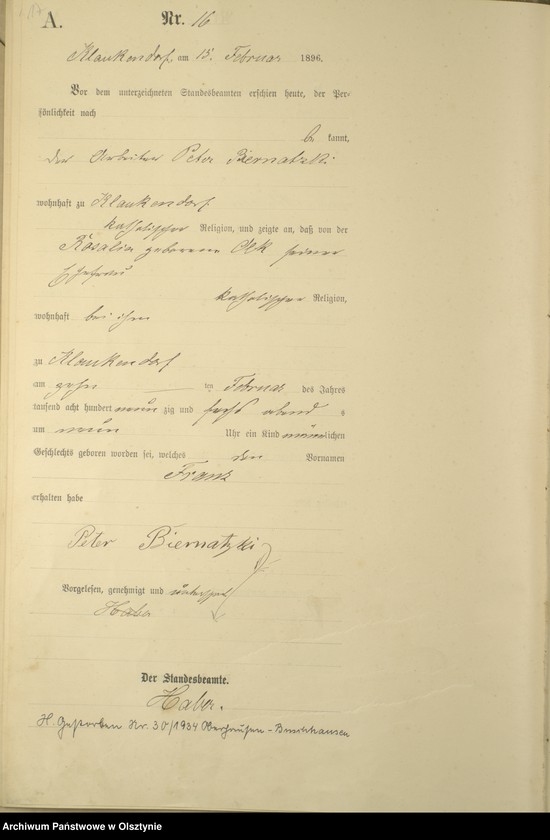 A.
Nr. 16
Klaukendorf, am 15. Februar 1896.
Vor dem unterzeichneten Standesbeamten erschien heute, der Per-
sönlichkeit nach
be kannt,
der Arbeiter Peter Biernatzki
wohnhaft zu Klaukendorf
katholischer Religion, und zeigte an, daß von der
Rosalia geborene seiner
Ehefrau
katholischer Religion,
wohnhaft bei ihm
zu Klaukendorf
am zehn ten Februar des Jahres
tausend acht hundert neun zig und sechs abend s
um neun Uhr ein Kind männlichen
Geschlechts geboren worden sei, welches den Vornamen
Franz
erhalten habe
Peter Biernatzki
Vorgelesen, genehmigt und
Der Standesbeamte.
H. Gestorben Nr. 30/1934 Oberhausen-Buschhausen
Archiwum Państwowe w Olsztynie